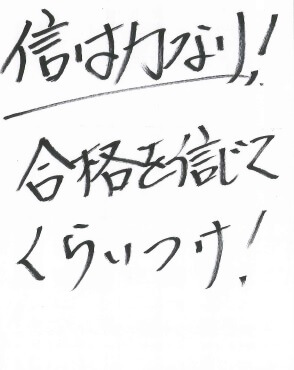 信は力なり!
合格を信じて
くらいつけ!